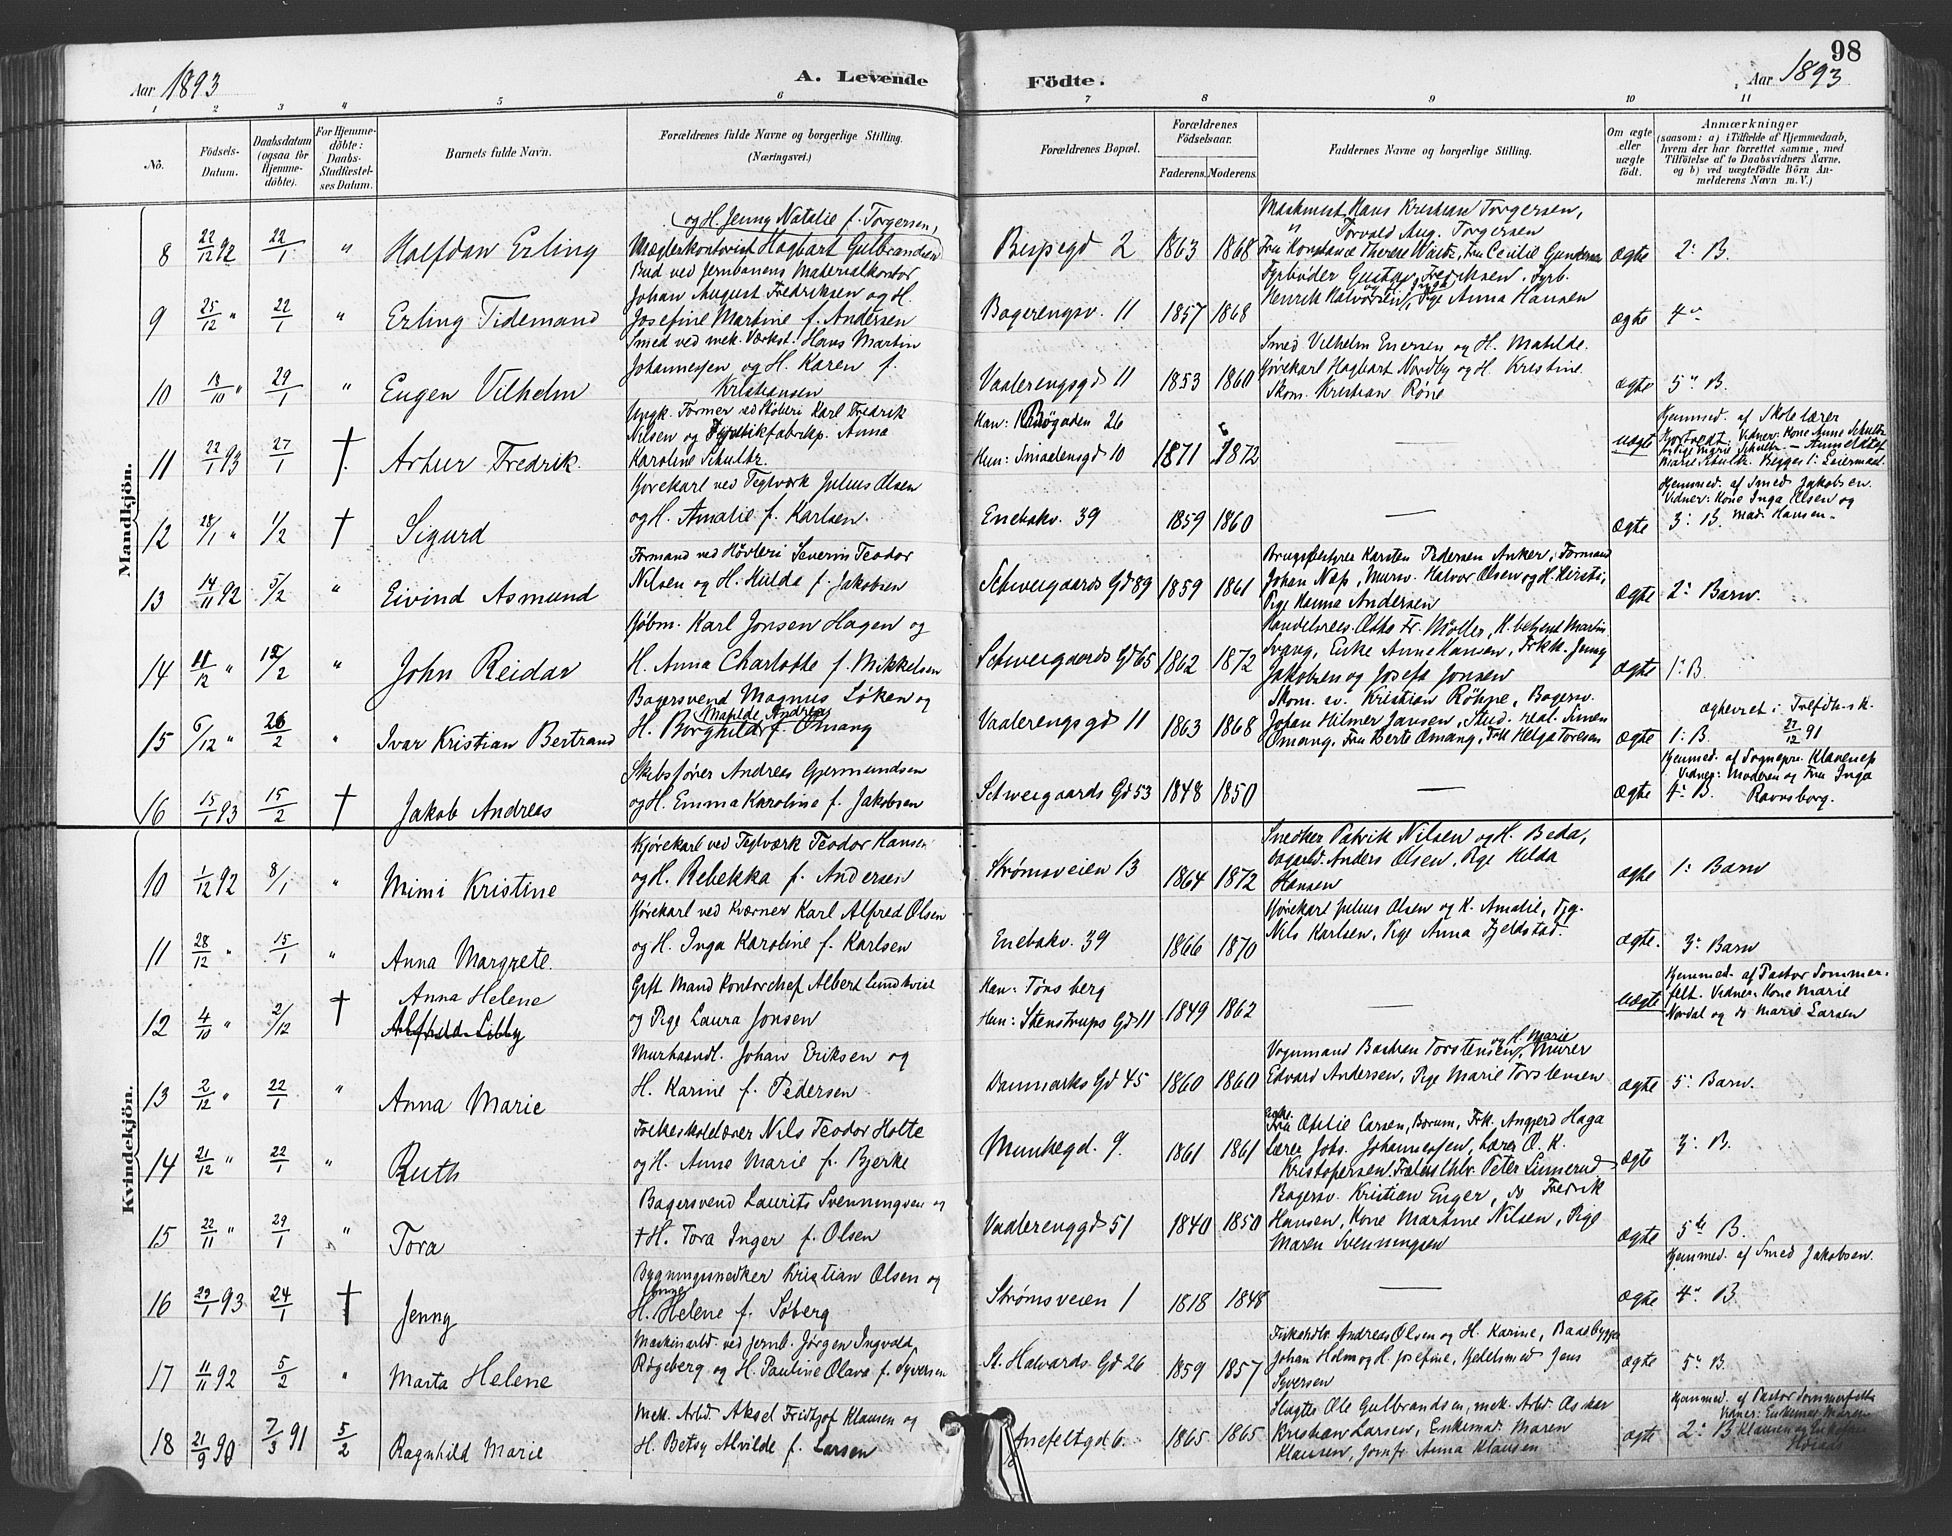 98
Aar 1893
A. Levende
Födte.
Aar 1893
1 2 3 4 5 6 7 8 9 10 11
No.
Födsels-Datum.
Daabsdatum (ogsaa for Hjemmedöbte).
For Hjemmedöbte: Daabs-Stadfæstelses Datum.
Barnets fulde Navn.
Forældrenes fulde Navne og borgerlige Stilling. (Næringsvei.)
Forældrenes Bopæl.
Forældrenes Födselsaar.
Faderens. Moderens.
Faddernes Navne og borgerlige Stilling.
Om ægte eller uægte födt.
Anmærkninger
(saasom: a) i Tilfælde af Hjemmedaab, hvem der har forrettet samme, med Tilföielse af to Daabsvidners Navne. og b) ved uægtefödte Börn Anmelderens Navn m. V.)
Mandkjön.
8 22/12 92 22/1 " Halfdan Erling
og H. Jenny Natalie f. Torgersen,
Mæglerkontorist Hagbart Gulbrandsen
Bispegd 2 1863 1868
Maskinist Hans Kristian Torgersen,
" Torvald Aug. Torgersen
Fru Konstance Therese Waltz, Fru Cecilie Gundersen
ægte 2: B.
9 25/12 " 22/1 " Erling Tidemand
Bud ved Jernbanens Materialkontor
Johan August Fredriksen og H.
Josefine Martine f. Andersen
Bagerengsv. 11 1857 1868
Fyrbøder Gustav Fredriksen, Fyrb.
Henrik Halvorsen, Pige Anna Hansen
ægte 4"
10 18/10 " 29/1 " Eugen Vilhelm
Smed ved mek. Værkst. Hans Martin
Johannesen og H. Karen f.
Kristiansen
Vaalerengsgd 11 1853 1860
Smed Vilhelm Enersen og H. Matilde.
Kjørekarl Hagbart Nordby og H. Kristine
Skom. Kristian Röne
ægte 5" B.
11 22/1 93 27/1 † Artur Fredrik
Ungk. Former ved Støberi Karl Fredrik
Nilsen og Fyrstikfabrikp. Anna
Karoline Schultz.
Han: 26
Hun: Smaalensgd 10 1871 1872
—
uægte
Hjemmed. af Skolelærer
Vidner: Kone Anne Schultz
og Pige Marie Schultz — Anmeldt af
Marie Schultz. Begges 1: Leiermaal.
12 28/1 " 1/2 † Sigurd
Kjørekarl ved Teglværk Julius Olsen
og H. Amalie f. Karlsen.
Enebakv. 39 1859 1860
—
ægte 3: B.
Hjemmed. af Smed Jakobsen.
Vidner: Kone Inga Olsen og
Mad. Hansen.
13 14/11 92 5/2 " Eivind Asmund
Formand ved Høvleri Severin Teodor
Nilsen og H. Hulda f. Jakobsen
Schweigaards Gd 89 1859 1861
Brugsbestyrer Karsten Pedersen Anker, Formand
Johan Næs, Mursv. Halvor Olsen og H. Kirsti,
Pige Hanna Andersen
ægte 2: Barn.
14 11/12 " 12/2 " John Reidar
Kjøbm. Karl Jonsen Hagen og
H. Anna Charlotte f. Mikkelsen
Schweigaards Gd 65 1862 1872
Handelsreis. Otto Fr. Møller, H.betjent Martin
Svang, Enke Anne Hansen, Frkk. Jenny
Jakobsen og Josefa Jonsen
ægte 1: B.
15 6/12 " 26/2 " Ivar Kristian Bertrand
Bagersvend Magnus Løken og
Matilde Andrea
H. Borghild f. Omang
Vaalerengsgd 11 1863 1868
Skom. sv. Kristian Röhne, Bagersv.
Johan Hilmer Jansen, Stud. real. Simen
Omang, Fru Berte Omang, Frk Helga Toresen
ægte 1: B.
ægteviet i Trefdh.sk.
27/12 91
16 15/1 93 15/2 † Jakob Andreas
Skibsfører Andreas Gjermundsen
og H. Emma Karoline f. Jakobsen
Schweigaards Gd 53 1848 1850
—
ægte 4: B.
Hjemmed. af Sognepr. Klaveness
Vidner: Moderen og Fru Inga
Ravnsborg.
Kvindekjön.
10 1/12 92 8/1 " Mimi Kristine
Kjørekarl ved Teglværk Teodor Hansen
og H. Rebekka f. Andersen
Strømsveien 13 1864 1872
Snedker Patrik Nilsen og H. Beda,
Anders Olsen, Pige Hilda
Hansen
ægte 1: Barn
11 28/12 " 15/1 " Anna Margrete
Kjørekarl ved Kværner Karl Alfred Olsen
og H. Inga Karoline f. Karlsen
Enebakv. 39 1866 1870
Kjørekarl Julius Olsen og H. Amalie,
Nils Karlsen, Pige Anna Fjeldstad.
ægte. 3: Barn
12 4/10 " 2/12 † Anna Helene
Alfhild Libby
Gift Mand Kontorchef Albert Lundkvist
og Pige Laura Jonsen
Han: Tønsberg
Hun: Stenstrups Gd 11 1849 1862
—
uægte
Hjemmed. af Pastor Sommerfelt. Vidner: Kone Marie
Nordal og do Marie Larsen
13 2/12 " 22/1 " Anna Marie
Murhaandl. Johan Eriksen og
H. Karine f. Pedersen
Danmarks Gd 45 1860 1860
og H. Marie
Vognmand Bastian Torstensen, Murer
Edvard Andersen, Pige Marie Torstensen
ægte 5: Barn.
14 21/12 " 22/1 " Ruth
Folkeskolelærer Nils Teodor Holte
og H. Anne Marie f. Bjerke
Munkegd. 9. 1861 1861
Fru Otilie Larsen, Bærum, Frk. Angjerd Haga
Lærer Johs. Johannesen, Lærer O. K.
Kristofersen, Peter Linnerud
ægte 3: B.
15 22/11 " 29/1 " Tora
Bagersvend Laurits Svenningsen og
† H. Tora Inger f. Olsen
Vaalerenggd 51 1840 1850
Bagersv. Kristian Enger, do Fredrik
Hansen, Kone Martine Nilsen, Pige
Maren Svenningsen
ægte 5te B.
16 23/1 93 24/1 † Jenny
Bygningssnedker Kristian Olsen og
H. Helene f. Søberg
Strømsveien 1 1818 1848
—
ægte 4" B.
Hjemmed. af Smed Jakobsen.
17 11/11 92 5/2 " Marta Helene
Maskinarbd. ved Jernb. Jørgen Ingvald
Røgeberg og H. Pauline Olava f. Syversen
St. Halvards Gd 26 1859 1857
Fiskehdlr. Andreas Olsen og H. Karine, Baadbygger
Johan Holm og H. Josefine, Kjedelsmed Jens
Syversen
ægte 5" B.
18 21/9 90 7/3 91 5/2 Ragnhild Marie
Mek. Arbd. Aksel Fridtjof Klausen og
H. Betsy Alvilde f. Larsen
Anefeltgd 6. 1865 1865
Slagter Ole Gulbrandsen, mek. Arbd. Oskar
Kristian Larsen, Enkemad. Maren
Klausen, Jomfr Anna Klausen
ægte 2: B
Hjemmed. af Pastor Sommerfelt
Vidner: Enkemad. Maren
Klausen og